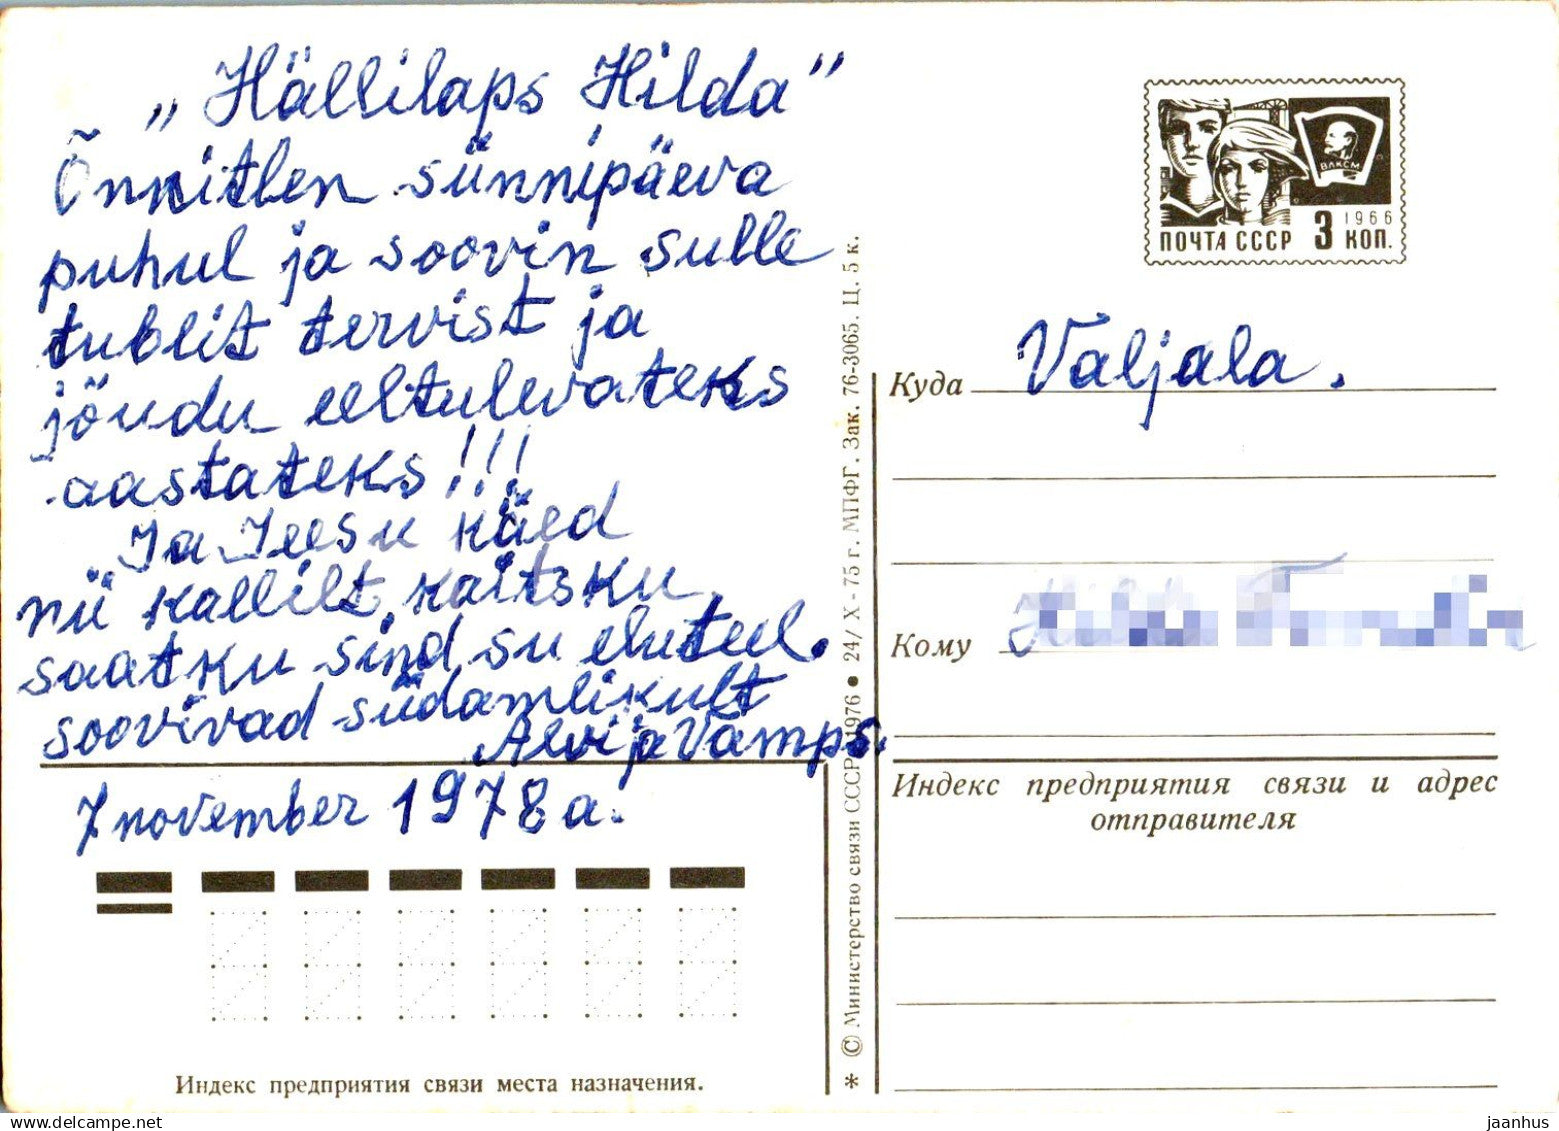 „Hällilaps Hilda”
Õnnitlen sünnipäeva
puhul ja soovin sulle
tublit tervist ja
jöudu eeltulevateks
aastateks!!!
Ja Jeesu käed
nii kallilt kaitsku
saatku sind su eluteel.
soovivad südamlikult
Alvi ja Vamps.
7 november 1978 a.
Индекс предприятия связи места назначения.
* © Министерство связи СССР, 1976 ● 24/X-75 г. МПФГ. Зак. 76-3065. Ц. 5 к.
ВЛКСМ
1966
ПОЧТА СССР 3 КОП.
Куда Valjala.
Кому
Индекс предприятия связи и адрес
отправителя
jaanhus